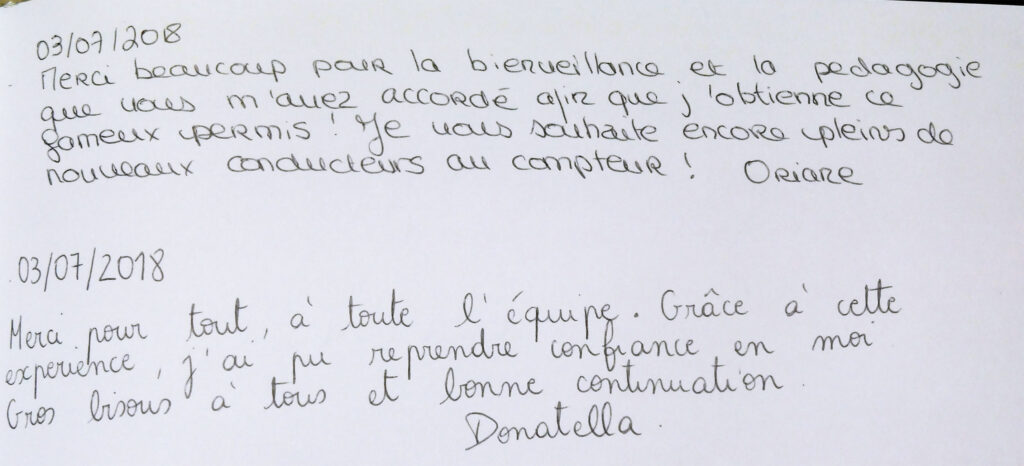 03/07/2018
Merci beaucoup pour la bienveillance et la pedagogie
que vous m'avez accordé afin que j'obtienne ce
fameux permis ! Je vous souhaite encore pleins de
nouveaux conducteurs au compteur ! Oriane
03/07/2018
Merci pour tout, à toute l'équipe. Grâce à cette
experience, j'ai pu reprendre confiance en moi
Gros bisous à tous et bonne continuation.
Donatella.